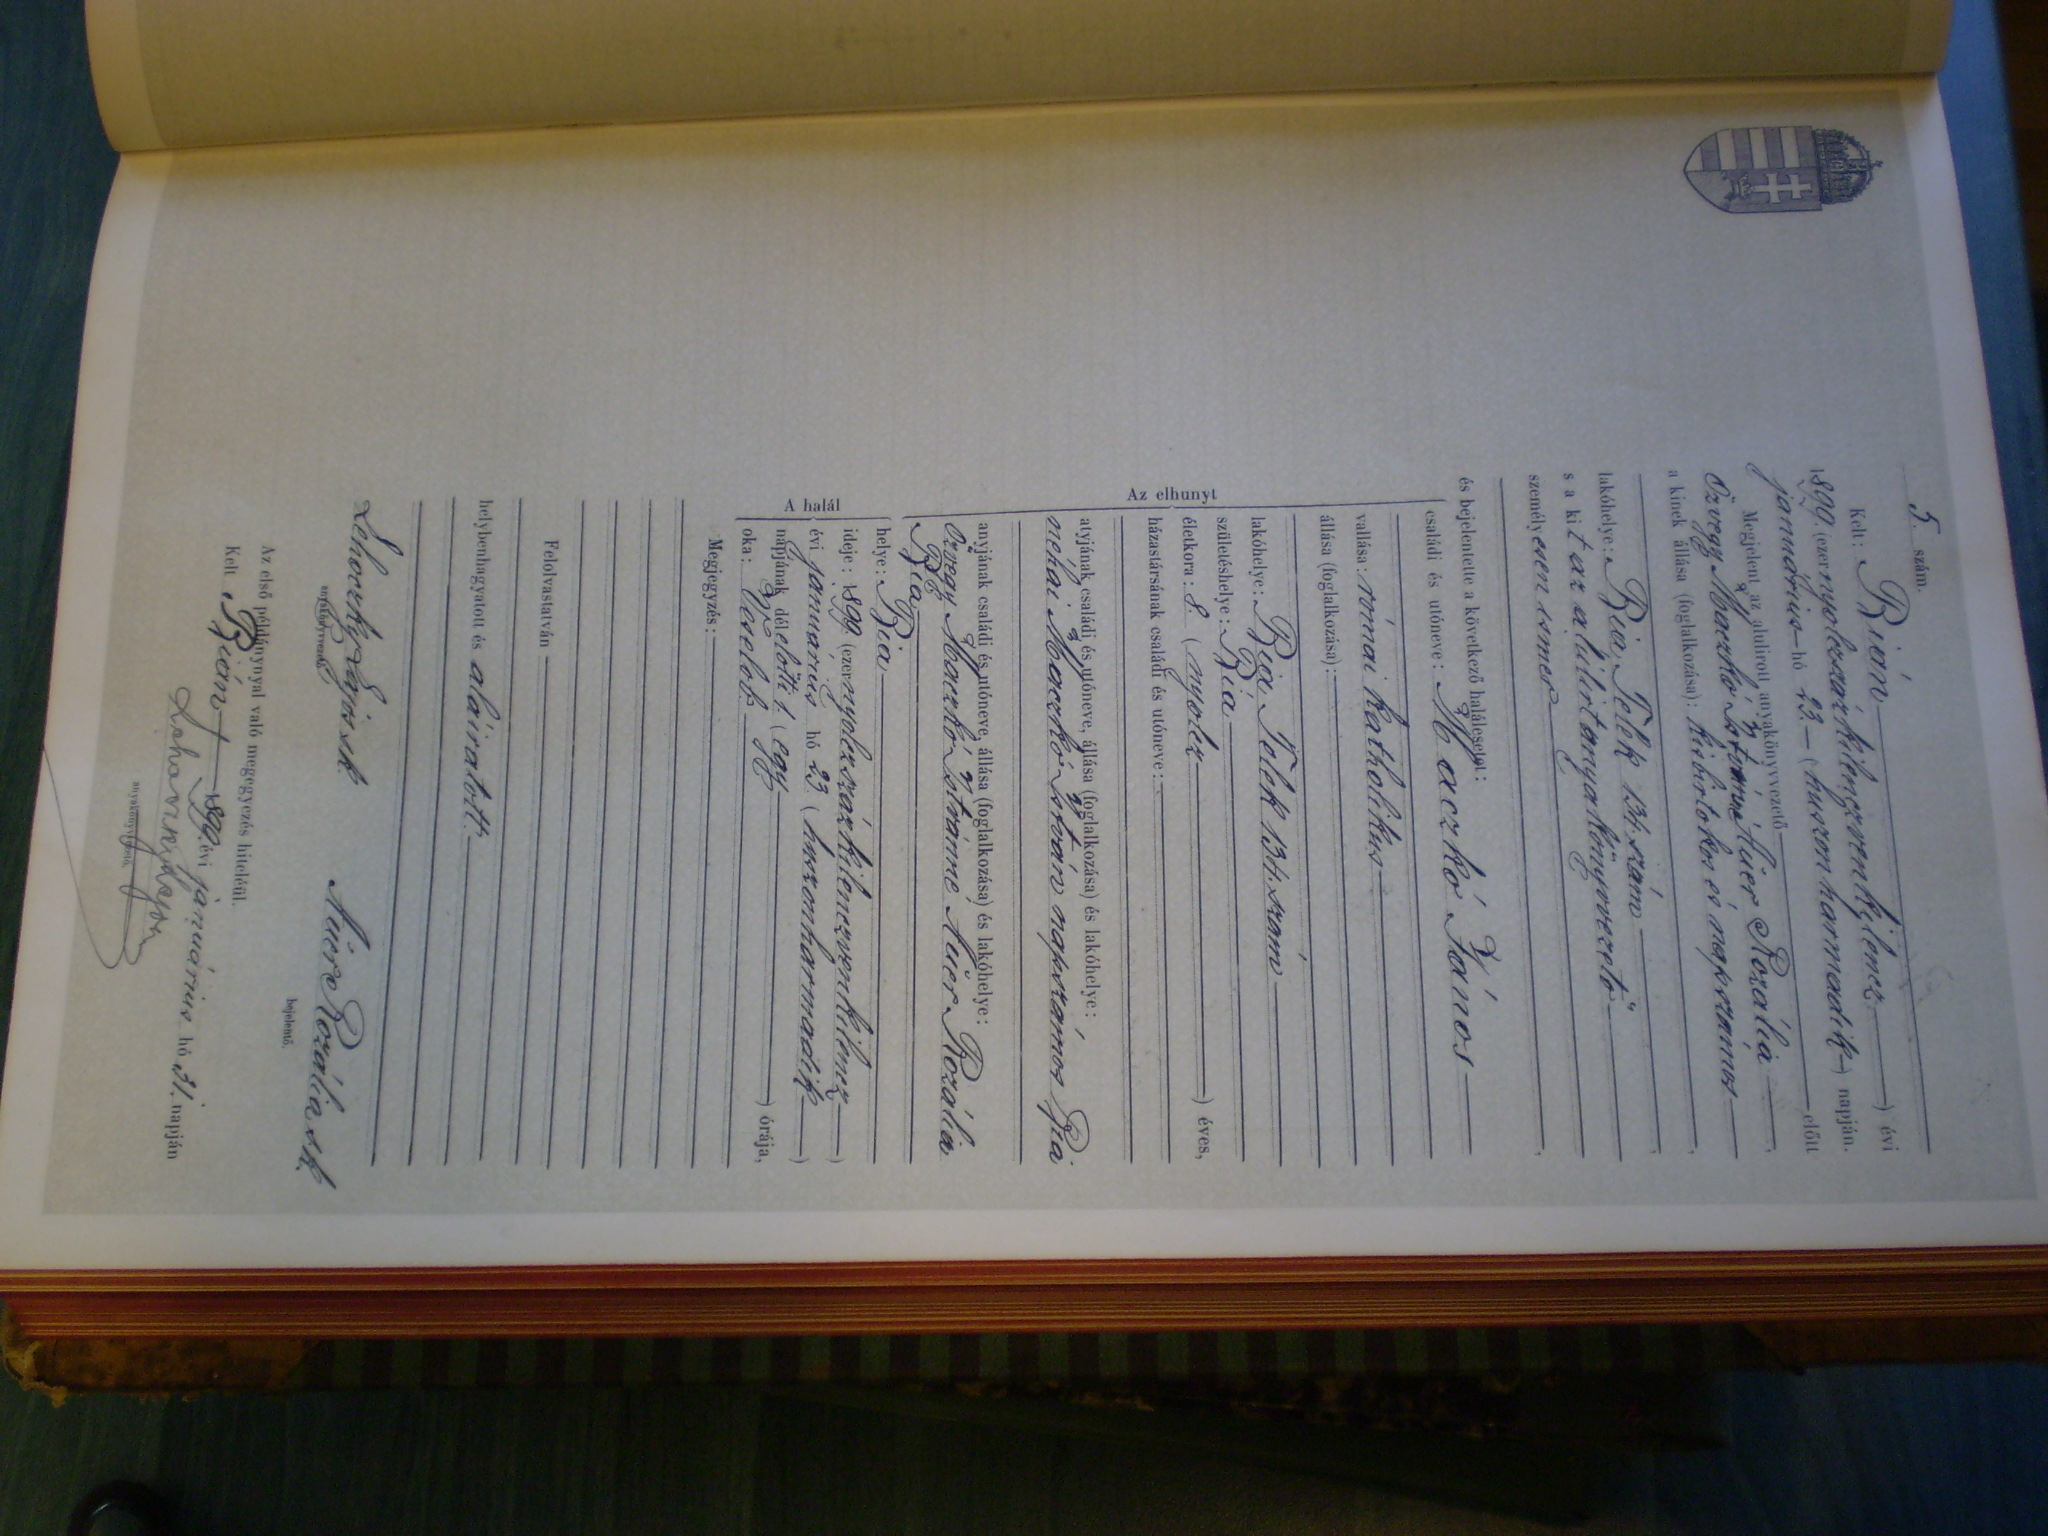 5. szám.
Kelt: Bián (ezer
1899. (ezernyolczszázkilenczvenkilencz) évi
január hó 23. (huszonharmadik) napján.
Megjelent az alulirott anyakönyvvezető előtt
Özvegy Maczkó Istvánné Auer Rozália
a kinek állása (foglalkozása): kisbirtokos és napszámos,
lakóhelye: Bia Telek 134. szám,
s a kit az alúlirt anyakönyvvezető
személyesen ismer,
és bejelentette a következő halálesetet:
Az elhunyt
családi és utóneve: Maczkó János
vallása: római katholikus
állása (foglalkozása):
lakóhelye: Bia Telek 134. szám
születéshelye: Bia
életkora: 8. (nyolcz) éves,
házastársának családi és utóneve:
atyjának családi és utóneve, állása (foglalkozása) és lakóhelye:
néhai Maczkó István napszámos Bia
anyjának családi és utóneve, állása (foglalkozása) és lakóhelye:
özvegy Maczkó Istvánné Auer Rozália
Bia
A halál
helye: Bia
ideje: 1899. (ezernyolczszázkilenczvenkilencz)
évi január hó 23. (huszonharmadik)
napjának délelőtti 1. (egy) órája,
oka:
Megjegyzés:
Felolvastatván
helybenhagyatott és aláiratott.
Lehoczky Lajos sk
anyakönyvvezető
Auer Rozália sk
bejelentő.
Az első példánynyal való megegyezés hiteléül.
Kelt Bián 1899. évi január hó 31. napján
Lehoczky Lajos
anyakönyvvezető